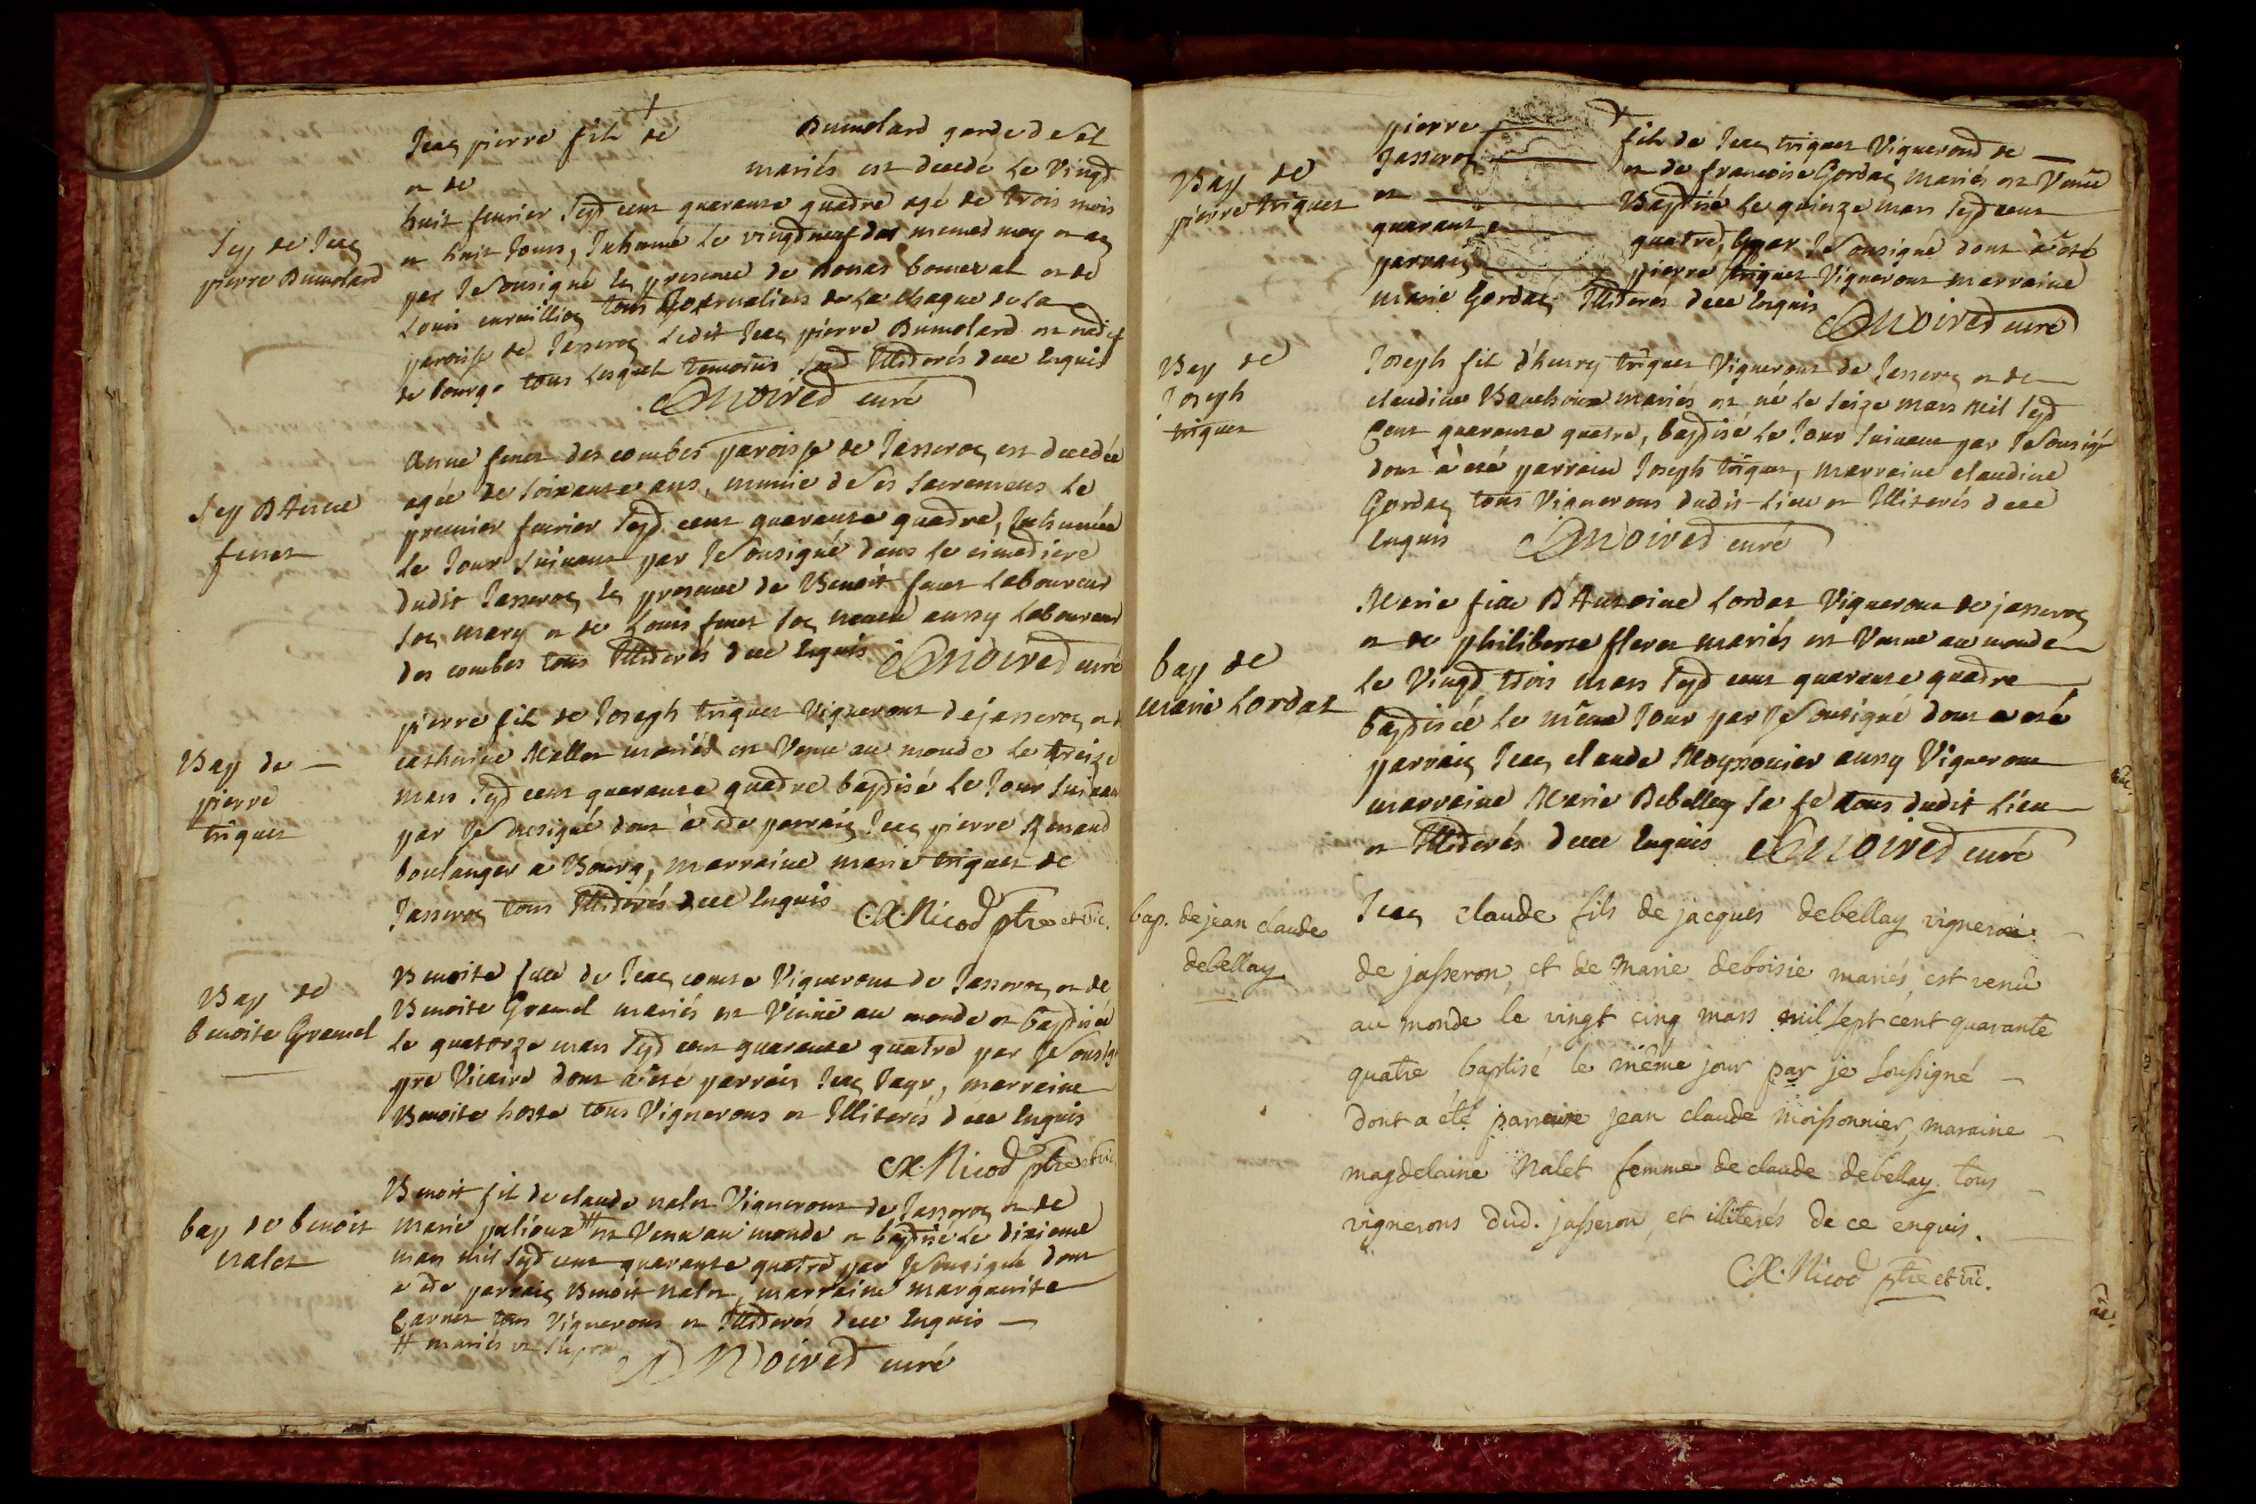 Sep de Jean
pierre Dumolard
Jean pierre fils de Dumolard garde de sel
et de mariés est decedé le Vingt
huit fevrier sept cent quarante quatre agé de trois mois
et huit Jours, Inhumé le vingt neuf des memes moy et an
par Je sousigné en presence de Donas bonneval et de
Louis curvillion tous Journaliers de La
paroisse de Jasseron Ledit Jean pierre Dumolard est natif
de bourg tous Lesquels temoins sont Illiterés de ce Enquis
Moiret curé
Sep D'Anne
fenet
Anne fenet des combes paroisse de Jasseron est decedée
agée de soixante ans, munie de ses sacremens le
premier fevrier sept cent quarante quatre, Inhumée
le Jour suivant par Je sousigné dans le cimetiere
dudit Jasseron en presence de Benoit fenet Laboureur
son mary et de Louis fenet son neveu aussy Laboureur
des combes tous Illiterés de ce Enquis Moiret curé
Bap de
pierre
triquet
pierre fils de Joseph triquet Vigneront de jasseron et
catherine Mallet mariés est Venu au monde le treize
mars sept cent quarante quatre baptisé le Jour suivant
par Je sousigné dont à été parrain Jean pierre Renaud
boulanger a Bourg, marraine marie triquet de
Jasseron tous Illiterés de ce Enquis C.X. Nicod ptre et vic.
Bap de
benoite Gramel
Benoite fille de Jean comte Vigneront de Jasseron et de
Benoite Gramel mariés est Venüe au monde et baptisée
le quatorze mars sept cent quarante quatre par Je sousig
pre Vicaire dont à été parrain Jean Payr, marraine
Benoite hoste tous Vignerons et Illiterés de ce Enquis
C.X. Nicod ptre et vic
bap de benoit
nalet
Benoit fils de claude nalet Vigneront de Jasseron et de
marie palioux # est Venu au monde et baptisé le dixieme
mars mil sept cent quarante quatre par Je sousigné dont
a été parrain Benoit nalet, marraine marguerite
Garnet tous Vignerons et Illiterés de ce Enquis
# mariés
Moiret curé
Bap de
pierre triquet
pierre fils de Jean triquet Vigneront de
Jasseron et de francoise Gordan mariés est Venu
et Baptisé le quinze mars sept cent
quarante quatre, par Je sousigné dont à été
parrain pierre triquet Vigneront marraine
marie Gordan Illiterés de ce Enquis
Moiret curé
Bap de
Joseph
triquet
Joseph fils d'henry triquet Vigneront de Jasseron et de
claudine Bouchoux mariés est né le seize mars mil sept
Cent quarante quatre, baptisé le Jour suivant par Je sousigé
dont à été parrain Joseph triquet, marraine claudine
Gordan tous Vignerons dudit Lieu et Illiterés de ce
Enquis Moiret curé
bap de
marie Lordat
Marie fille D'Antoine Lordat Vigneront de jasseron
et de philiberte fleret mariés est Venue au monde
le Vingt trois mars sept cent quarante quatre
baptisée le même Jour par Je sousigné dont a été
parrain Jean claude Moyssonier aussy Vigneront
marraine Marie Debellay sa fe tous dudit Lieu
et Illiterés de ce Enquis Moiret curé
bap. de jean claude
debellay
Jean claude fils de jacques debellay vigneron
de jasseron, et de Marie deboisie mariés, est venû
au monde le vingt cinq mars mil sept cent quarante
quatre baptisé le même jour par je soussigné
dont a été parraine jean claude moissonnier, maraine
magdelaine Nalet femme de claude debellay. tous
vignerons dud. jasseron, et illiterés de ce enquis.
C.X. Nicod ptre et vic.